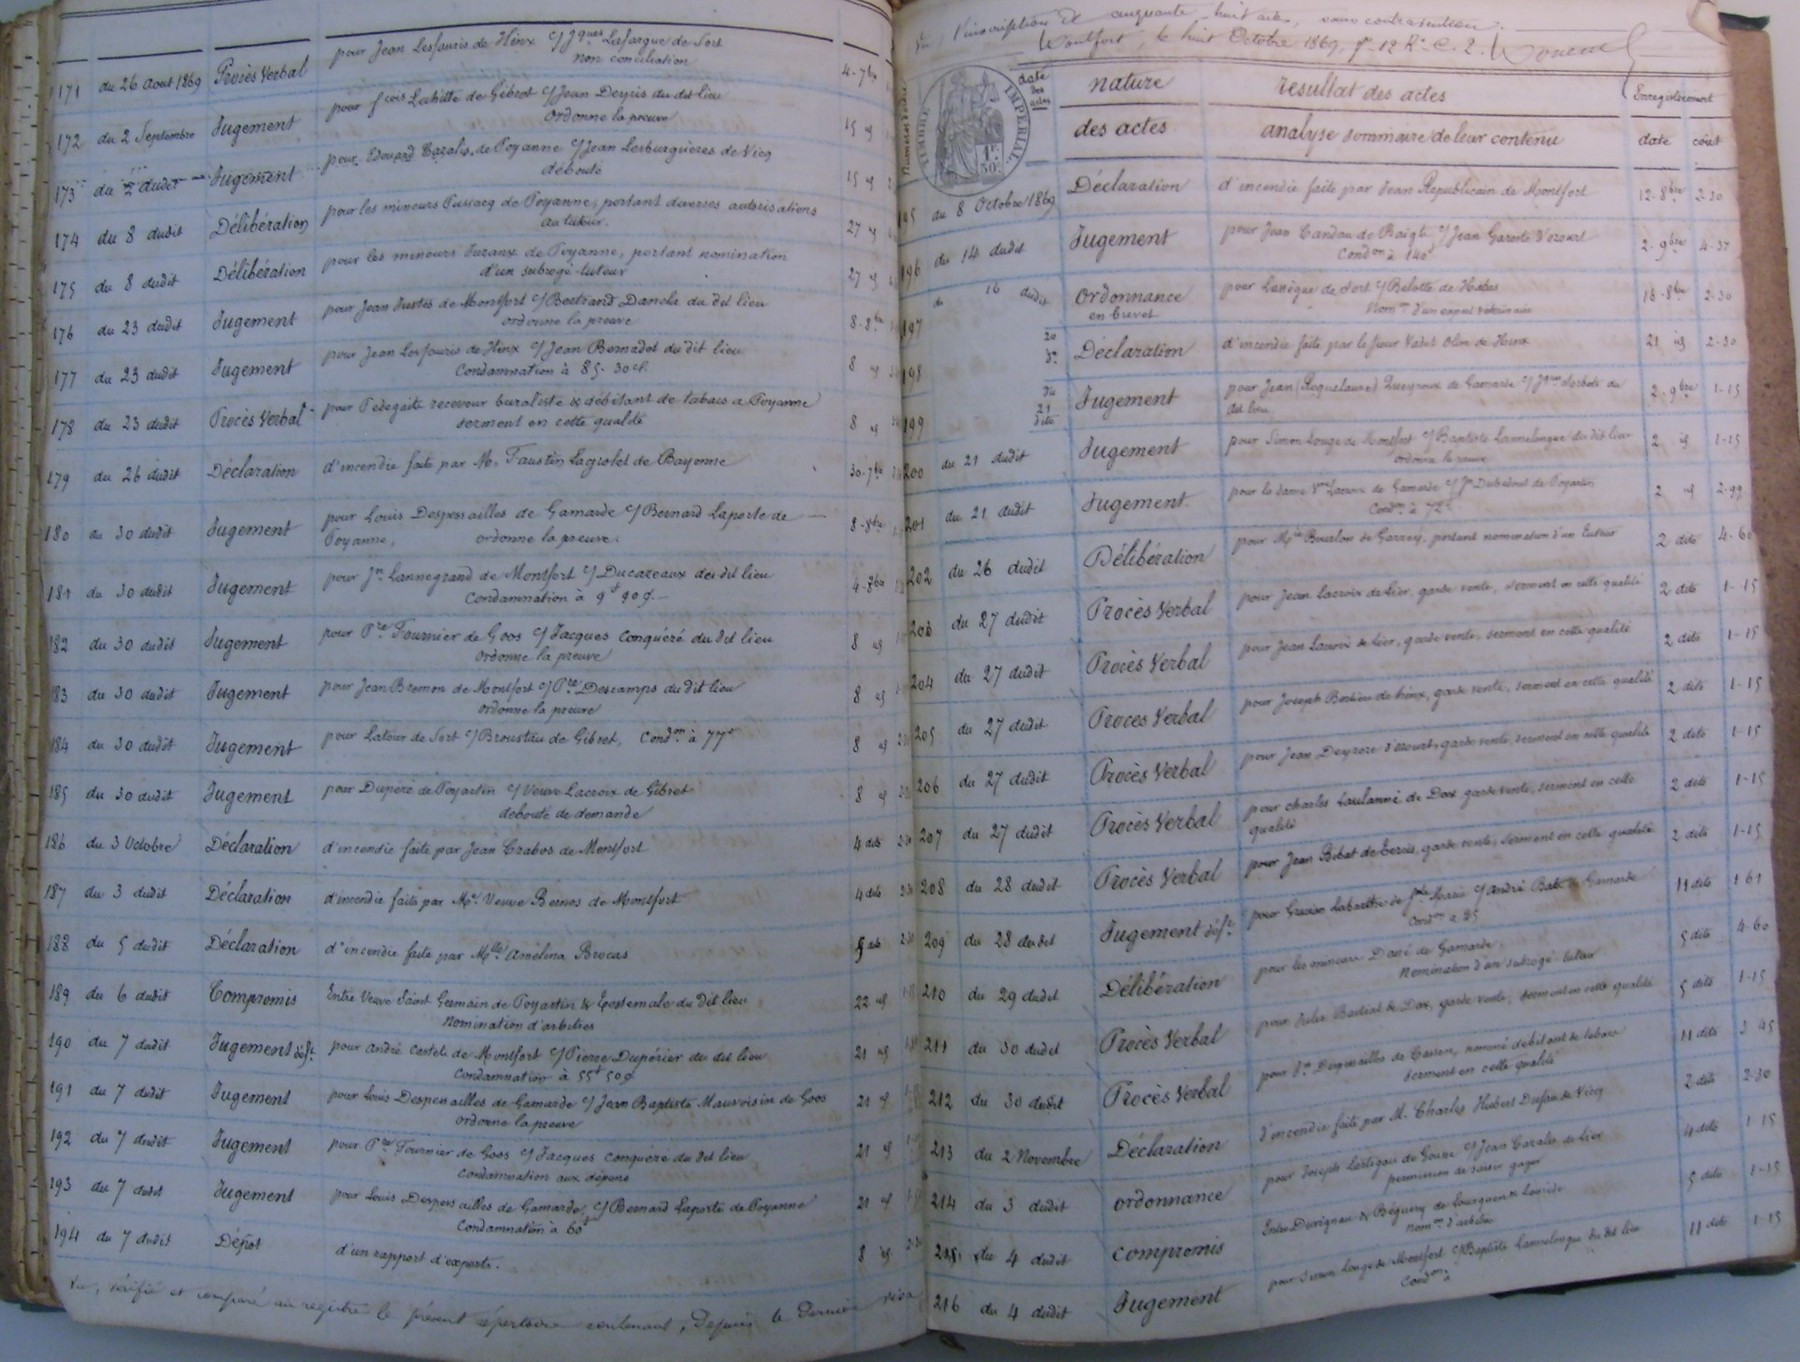 171 du 26 Aout 1869 Procès Verbal pour Jean Lesfauris de Hinx c/ Jques Lafargue de Sort 4-7bre
non conciliation
172 du 2 Septembre Jugement pour fcois Labitte de Gibret c/ Jean Deyris du dit lieu 15
ordonne la preuve
173 du 2 dudit Jugement pour Edouard Cazalis de Poyanne c/ Jean Lesburguères de Vicq 15
débouté
174 du 8 dudit Délibération pour les mineurs de Poyanne, portant diverses autorisations 27
au tuteur.
175 du 8 dudit Délibération pour les mineurs de Poyanne, portant nomination 27
d'un subrogé-tuteur
176 du 23 dudit Jugement pour Jean Justes de Montfort c/ Bertrand du dit lieu 8-8bre
ordonne la preuve
177 du 23 dudit Jugement pour Jean Lesfauris de Hinx c/ Jean Bernadet du dit lieu 8
Condamnation à 85-30c.
178 du 23 dudit Procès Verbal pour receveur buraliste & débitant de tabacs a Poyanne 8
serment en cette qualité
179 du 26 dudit Déclaration d'incendie faite par Mr Faustin Lagrolet de Bayonne 30-7bre
180 du 30 dudit Jugement pour Louis Despessailles de Gamarde c/ Bernard Laporte de 8-8bre
Poyanne, ordonne la preuve.
181 du 30 dudit Jugement pour Jn Lannegrand de Montfort c/ Ducazeaux du dit lieu
Condamnation à 9f 90c
182 du 30 dudit Jugement pour Pre Fournier de Goos c/ Jacques Conquéré du dit lieu 8
ordonne la preuve
183 du 30 dudit Jugement pour Jean Bremon de Montfort c/ Pre Descamps du dit lieu 8
ordonne la preuve
184 du 30 dudit Jugement pour Latour de Sort c/ Broustau de Gibret, Condon à 77f 8
185 du 30 dudit Jugement pour Dupéré de Poyartin c/ Veuve Lacroix de Gibret 8
deboute de demande
186 du 3 Octobre Déclaration d'incendie faite par Jean Crabos de Montfort 4 dito
187 du 3 dudit Déclaration d'incendie faite par Me Veuve Bernos de Montfort 4 dito
188 du 5 dudit Déclaration d'incendie faite par Melle Amélina Brocas
189 du 6 dudit Compromis Entre Veuve Saint Germain de Poyartin & du dit lieu 22
Nomination d'arbitres
190 du 7 dudit Jugement déft pour André Castets de Montfort c/ Pierre Dupérier du dit lieu 21
Condamnation à 55f 50c
191 du 7 dudit Jugement pour Louis Despessailles de Gamarde c/ Jean Baptiste Mauvoisin de Goos 21
ordonne la preuve
192 du 7 dudit Jugement pour Pre Fournier de Goos c/ Jacques conquéré du dit lieu 21
Condamnation aux dépens
193 du 7 dudit Jugement pour Louis Despessailles de Gamarde, c/ Bernard Laporte de Poyanne 21
Condamnation à 60f
194 du 7 dudit Dépot d'un rapport d'experts. 8
Vu, vérifié et comparé au registre le présent répertoire contenant, depuis le dernier visa
Vu, l'inscription de cinquante-huit actes, sans contravention.
Montfort, le huit Octobre 1869, fo 12 Ro C. 2.
TIMBRE IMPÉRIAL
1F 50C
Numéros d'ordre date des actes nature des actes résultat des actes Enregistrement
analyse sommaire de leur contenu date coût
195 du 8 Octobre 1869 Déclaration d'incendie faite par Jean Republicain de Montfort 12-8bre 2-30
196 du 14 dudit Jugement pour Jean Candau de Baigts c/ Jean d'ozourt 2-9bre 4-37
Condon à 140f
197 du 16 dudit Ordonnance pour de Sort c/ Belotte de 18-8bre 2-30
en brevet Nomon d'un expert vétérinaire
198 20 do Déclaration d'incendie faite par le sieur de Hinx 21 2-30
199 du 21 dito Jugement pour Jean (Roquelaure) de Gamarde c/ du 2-9bre 1-15
dit lieu
200 du 21 dudit Jugement pour Simon Louge de Montfort c/ Baptiste Lannelongue du dit lieu 2 1-15
ordonne la preuve
201 du 21 dudit Jugement pour la dame Vve Lacroix de Gamarde c/ Jn de Poyartin 2 2-99
Condon à 72f
202 du 26 dudit Délibération pour de Garrey, portant nomination d'un tuteur 2 dito 4-60
203 du 27 dudit Procès Verbal pour Jean Lacroix de Lier, garde vente, serment en cette qualité 2 dito 1-15
204 du 27 dudit Procès Verbal pour Jean Lacroix de Lier, garde vente, serment en cette qualité 2 dito 1-15
205 du 27 dudit Procès Verbal pour Joseph de hinx, garde vente, serment en cette qualité 2 dito 1-15
206 du 27 dudit Procès Verbal pour Jean d'ozourt, garde vente, serment en cette qualité 2 dito 1-15
207 du 27 dudit Procès Verbal pour Charles de Dax garde vente, serment en cette 2 dito 1-15
qualité
208 du 28 dudit Procès Verbal pour Jean garde vente, serment en cette qualité 2 dito 1-15
209 du 28 dudit Jugement déft pour Labarthe de Ste Marie c/ André de Gamarde 11 dito 1 61
Condon à 25
210 du 29 dudit Délibération pour les mineurs de Gamarde, 5 dito 4-60
Nomination d'un subrogé tuteur
211 du 30 dudit Procès Verbal pour Jules Bastiat de Dax, garde vente, serment en cette qualité 5 dito 1-15
212 du 30 dudit Procès Verbal pour Despessailles de Cassen, nommé débitant de tabacs 11 dito 3 45
serment en cette qualité
213 du 2 Novembre Déclaration d'incendie faite par M. Charles Hubert de Vicq 2 dito 2-30
214 du 3 dudit ordonnance pour Joseph de Gouze c/ Jean Cazalis de Lier 4 dito 1 15
permission de saisir gager
215 du 4 dudit compromis Entre Duvignau & Béguery de Lourquen & 5 dito 1-15
nomon d'arbitre
216 du 4 dudit Jugement pour Simon Louge de Montfort c/ Baptiste Lannelongue du dit lieu 11 dito 1-15
Condon à